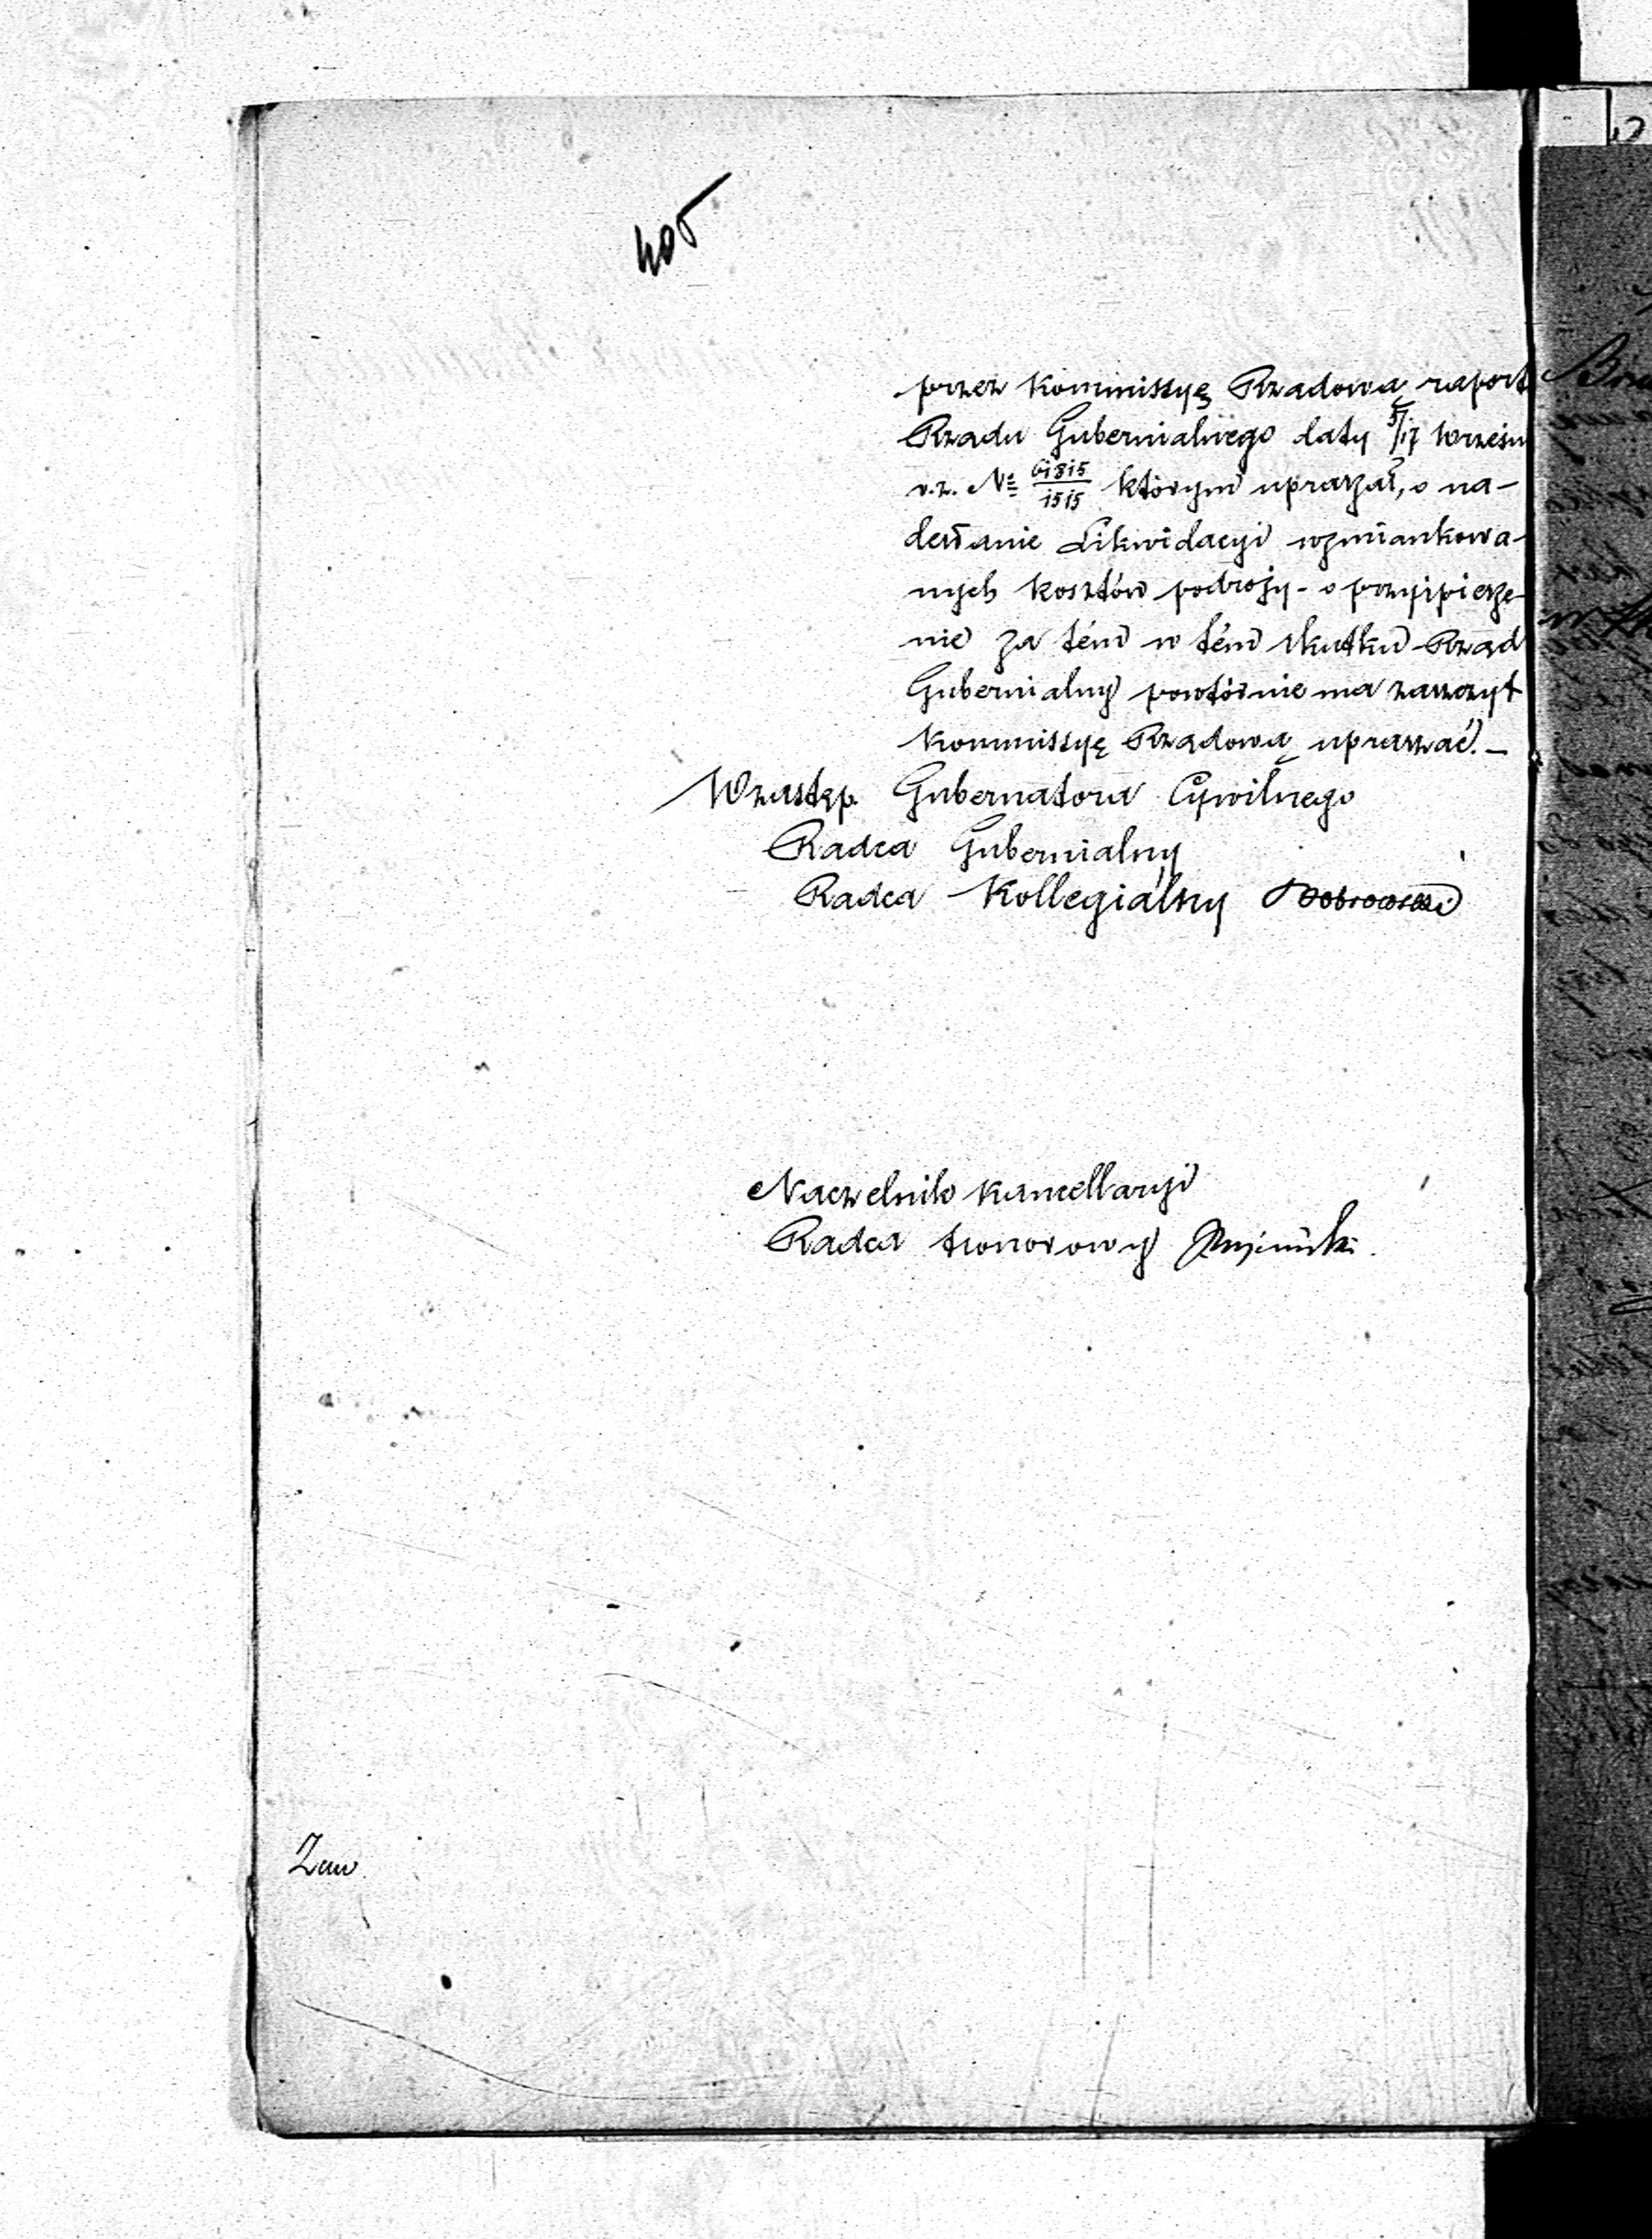 405
przez Kommissyę Rządową raport
Rządu Gubernialnego daty 5/17 Wrześn
v.z. No 61815/1515 którym upraszał, o na-
desłanie Likwidacyi wzmiankowa-
nych kosztów podroży - o przyspiesze-
nie za tém w tém skutku Rząd
Gubernialny powtórnie ma zaszczyt
Kommissyę Rządową upraszać. -
W zastęp. Gubernatora Cywilnego
Radca Gubernialny
Radca Kollegialny
Naczelnik Kancellaryi
Radca Honorowy